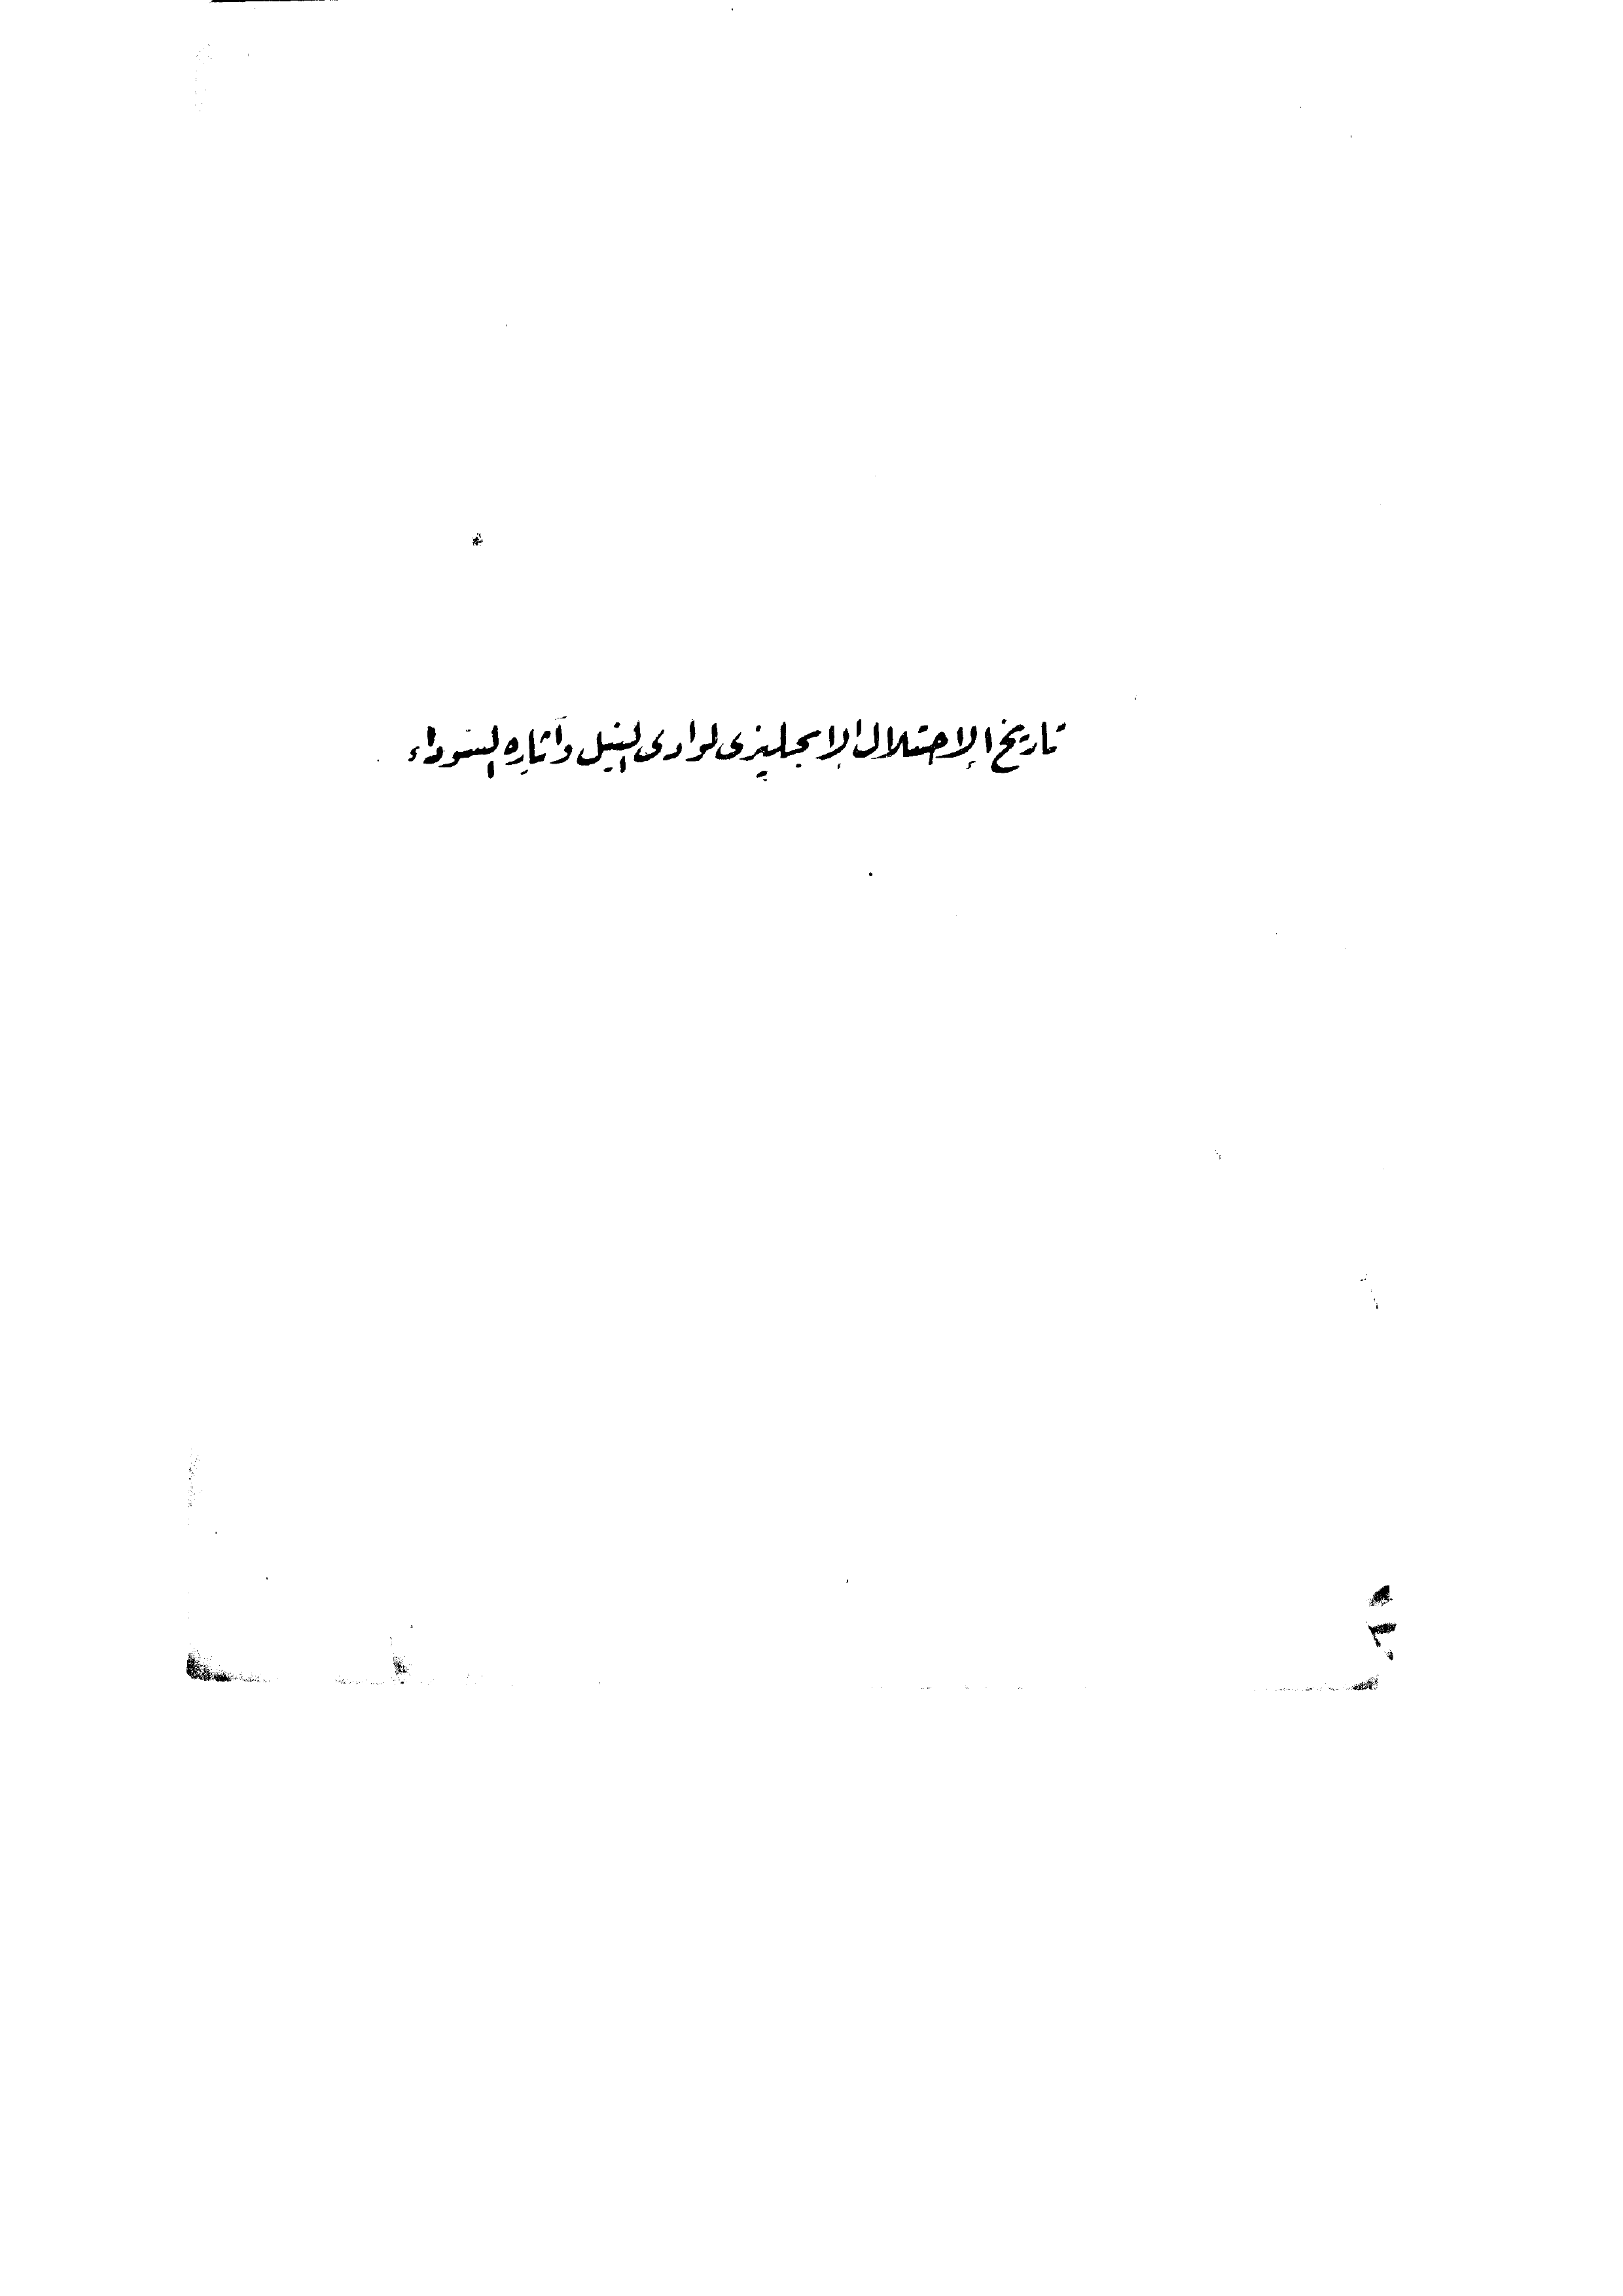 تاريخ الإحتلال الإنجليزى لوادى النيل وآثاره السوداء